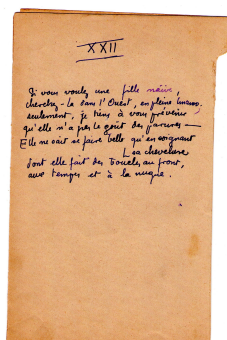 XXII
Si vous voulez une fille naïve,
cherchez-la dans l'Ouest, en pleine
seulement, je tiens à vous prévenir
qu'elle n'a pas le goût des parures —
Elle ne sait se faire belle qu'en soignant
sa chevelure
dont elle fait des boucles au front,
aux tempes et à la nuque.